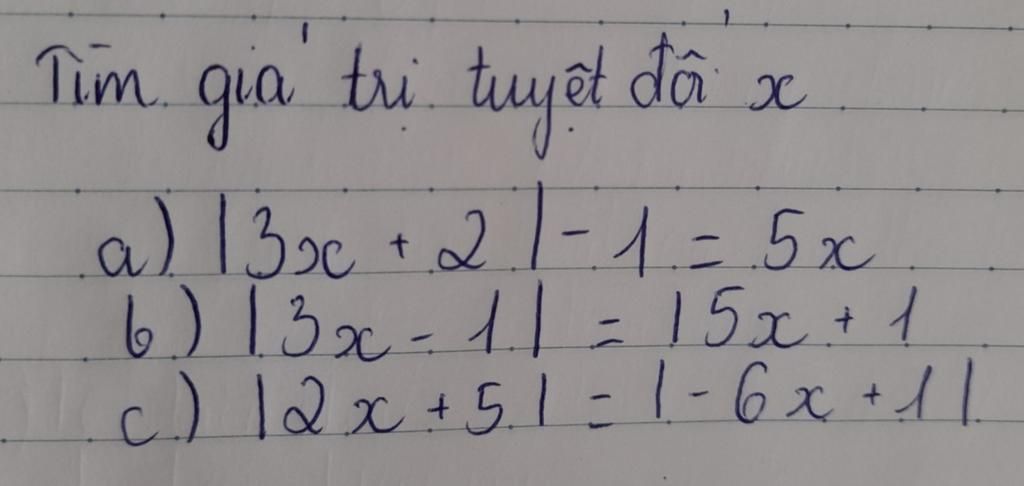 Tìm giá trị tuyệt đối x
a) |3x + 2| - 1 = 5x
b) |3x - 1| = |5x + 1
c) |2x + 5| = |- 6x + 1|